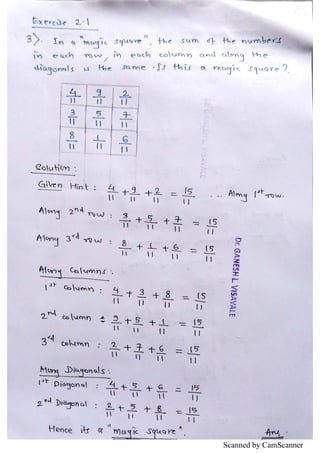 Exercise 2.1
3>. In a "magic square", the sum of the numbers
in each row, in each column and along the
diagonals is the same. Is this a magic square?
4/11 9/11 2/11
3/11 5/11 7/11
8/11 1/11 6/11
Solution:
Given Hint: 4/11 + 9/11 + 2/11 = 15/11 ... Along 1st row.
Along 2nd row: 3/11 + 5/11 + 7/11 = 15/11
Along 3rd row: 8/11 + 1/11 + 6/11 = 15/11
Along Columns:
1st Column: 4/11 + 3/11 + 8/11 = 15/11
2nd column: 9/11 + 5/11 + 1/11 = 15/11
3rd column: 2/11 + 7/11 + 6/11 = 15/11
Along Diagonals:
1st Diagonal: 4/11 + 5/11 + 6/11 = 15/11
2nd Diagonal: 2/11 + 5/11 + 8/11 = 15/11
Hence its a "magic square". Ans.
DR. GANESH L. VISAVALE
Scanned by CamScanner